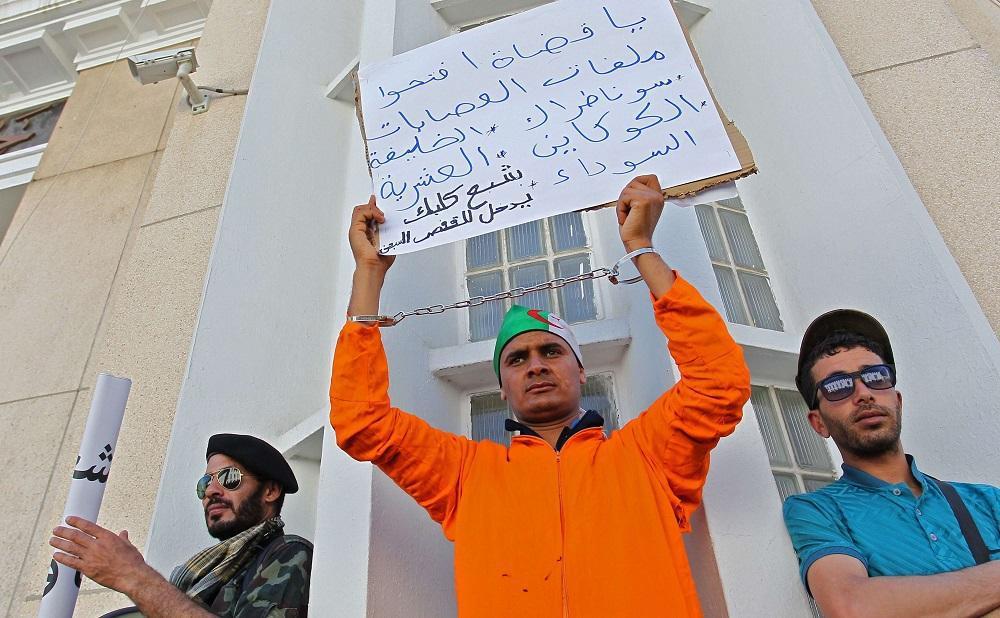 يا قضاة افتحوا
ملفات العصابات
*سوناطراك *الخليفة
*الكوكايين *العشرية
السوداء
"شبع كلبك
يدخل للقفص